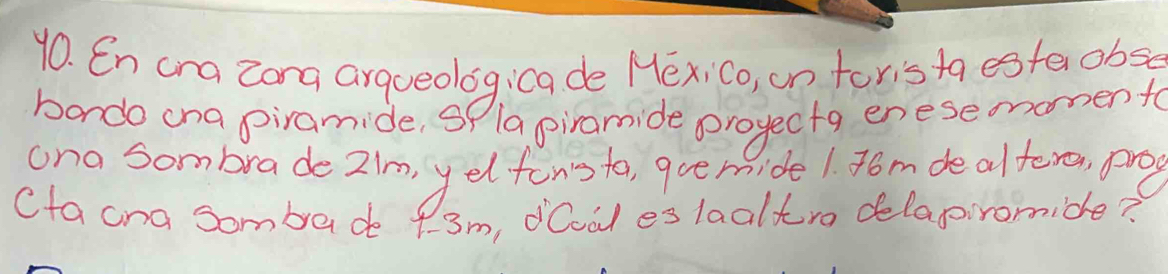 10. En una zona arqueológica de México, un turista esta obse
bando una piramide, si la piramide proyecta en ese momento
una sombra de 21m, y el turista, que mide 1.76m de altura, proy
cta una sombra de 1.3m, d'Cuál es la altura de la piramide?